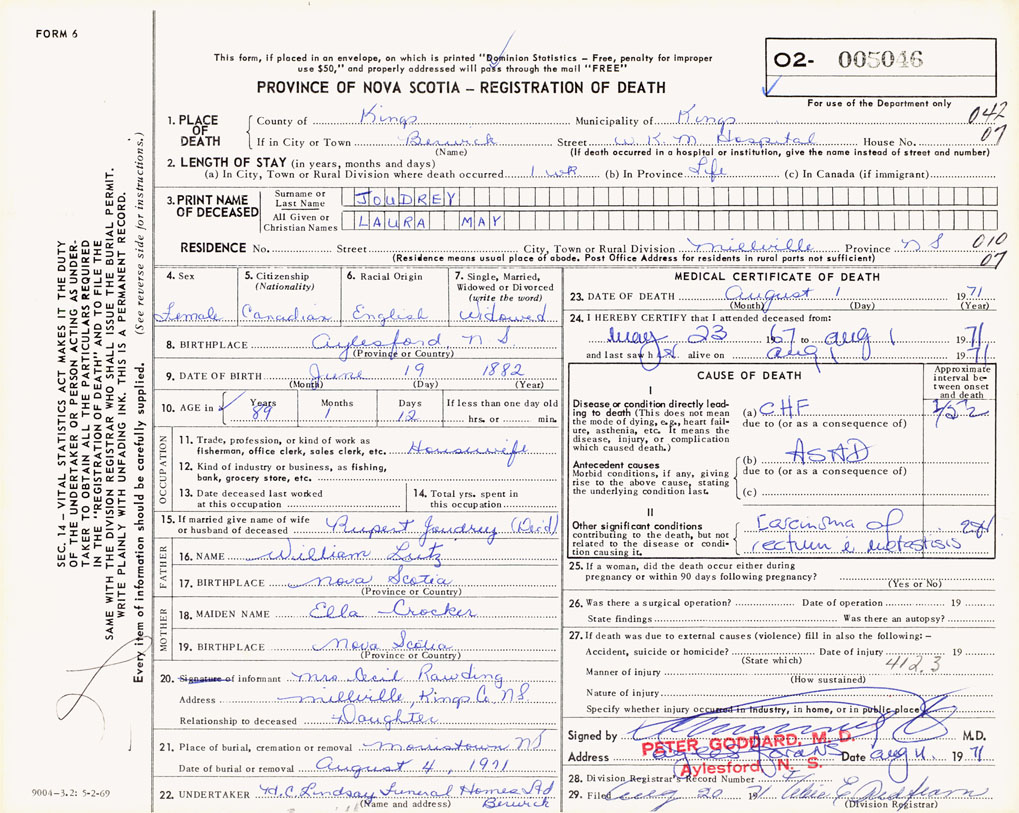 FORM 6
This form, if placed in an envelope, on which is printed "Dominion Statistics – Free, penalty for improper
use $50," and properly addressed will pass through the mail "FREE"
PROVINCE OF NOVA SCOTIA – REGISTRATION OF DEATH
O2- 005046
For use of the Department only
SEC. 14 – VITAL STATISTICS ACT MAKES IT THE DUTY
OF THE UNDERTAKER OR PERSON ACTING AS UNDER-
TAKER TO OBTAIN ALL THE PARTICULARS REQUIRED
IN THE "REGISTRATION OF DEATH" AND TO FILE THE
SAME WITH THE DIVISION REGISTRAR WHO SHALL ISSUE THE BURIAL PERMIT.
WRITE PLAINLY WITH UNFADING INK. THIS IS A PERMANENT RECORD.
Every item of information should be carefully supplied. (See reverse side for instructions.)
1. PLACE OF DEATH
County of Kings Municipality of Kings 042
If in City or Town Berwick Street W.K.M Hospital House No. 07
(Name) (If death occurred in a hospital or institution, give the name instead of street and number)
2. LENGTH OF STAY (in years, months and days)
(a) In City, Town or Rural Division where death occurred 1 wk (b) In Province Life (c) In Canada (if immigrant)
3. PRINT NAME OF DECEASED
Surname or Last Name JOUDREY
All Given or Christian Names LAURA MAY
RESIDENCE No. Street City, Town or Rural Division Millville Province NS 010
(Residence means usual place of abode. Post Office Address for residents in rural parts not sufficient) 07
4. Sex Female
5. Citizenship (Nationality) Canadian
6. Racial Origin English
7. Single, Married, Widowed or Divorced (write the word) Widowed
8. BIRTHPLACE Aylesford, N S
(Province or Country)
9. DATE OF BIRTH June 19 1882
(Month) (Day) (Year)
10. AGE in Years 89 Months 1 Days 12 If less than one day old hrs. or min.
OCCUPATION
11. Trade, profession, or kind of work as
fisherman, office clerk, sales clerk, etc. Housewife
12. Kind of industry or business, as fishing,
bank, grocery store, etc.
13. Date deceased last worked
at this occupation
14. Total yrs. spent in
this occupation
15. If married give name of wife
or husband of deceased Rupert Joudrey (Dec'd)
FATHER
16. NAME William Lutz
17. BIRTHPLACE Nova Scotia
(Province or Country)
MOTHER
18. MAIDEN NAME Ella Crocker
19. BIRTHPLACE Nova Scotia
(Province or Country)
20. Signature of informant Mrs Cecil Rawding
Address Millville, Kings Co. NS
Relationship to deceased Daughter
21. Place of burial, cremation or removal Morristown NS
Date of burial or removal August 4, 1971
22. UNDERTAKER H.C. Lindsay Funeral Homes Ltd
(Name and address) Berwick
9004-3.2: 5-2-69
MEDICAL CERTIFICATE OF DEATH
23. DATE OF DEATH August 1 1971
(Month) (Day) (Year)
24. I HEREBY CERTIFY that I attended deceased from:
May 23 1967 to Aug 1 1971
and last saw her alive on Aug 1 1971
CAUSE OF DEATH
Approximate interval between onset and death
I
Disease or condition directly lead-
ing to death (This does not mean
the mode of dying, e.g., heart fail-
ure, asthenia, etc. It means the
disease, injury, or complication
which caused death.)
(a) CHF
due to (or as a consequence of)
Antecedent causes
Morbid conditions, if any, giving
rise to the above cause, stating
the underlying condition last.
(b) ASHD
due to (or as a consequence of)
(c)
II
Other significant conditions
contributing to the death, but not
related to the disease or condi-
tion causing it.
Carcinoma of
rectum c metastasis
25. If a woman, did the death occur either during
pregnancy or within 90 days following pregnancy?
(Yes or No)
26. Was there a surgical operation? Date of operation 19
State findings Was there an autopsy?
27. If death was due to external causes (violence) fill in also the following: –
Accident, suicide or homicide? Date of injury 19
(State which) 412.3
Manner of injury
(How sustained)
Nature of injury
Specify whether injury occurred in industry, in home, or in public place
Signed by M.D.
PETER GODDARD, M. D.
Address Date Aug 4 1971
Aylesford, N. S.
28. Division Registrar's Record Number
29. Filed Aug 20 1971
(Division Registrar)